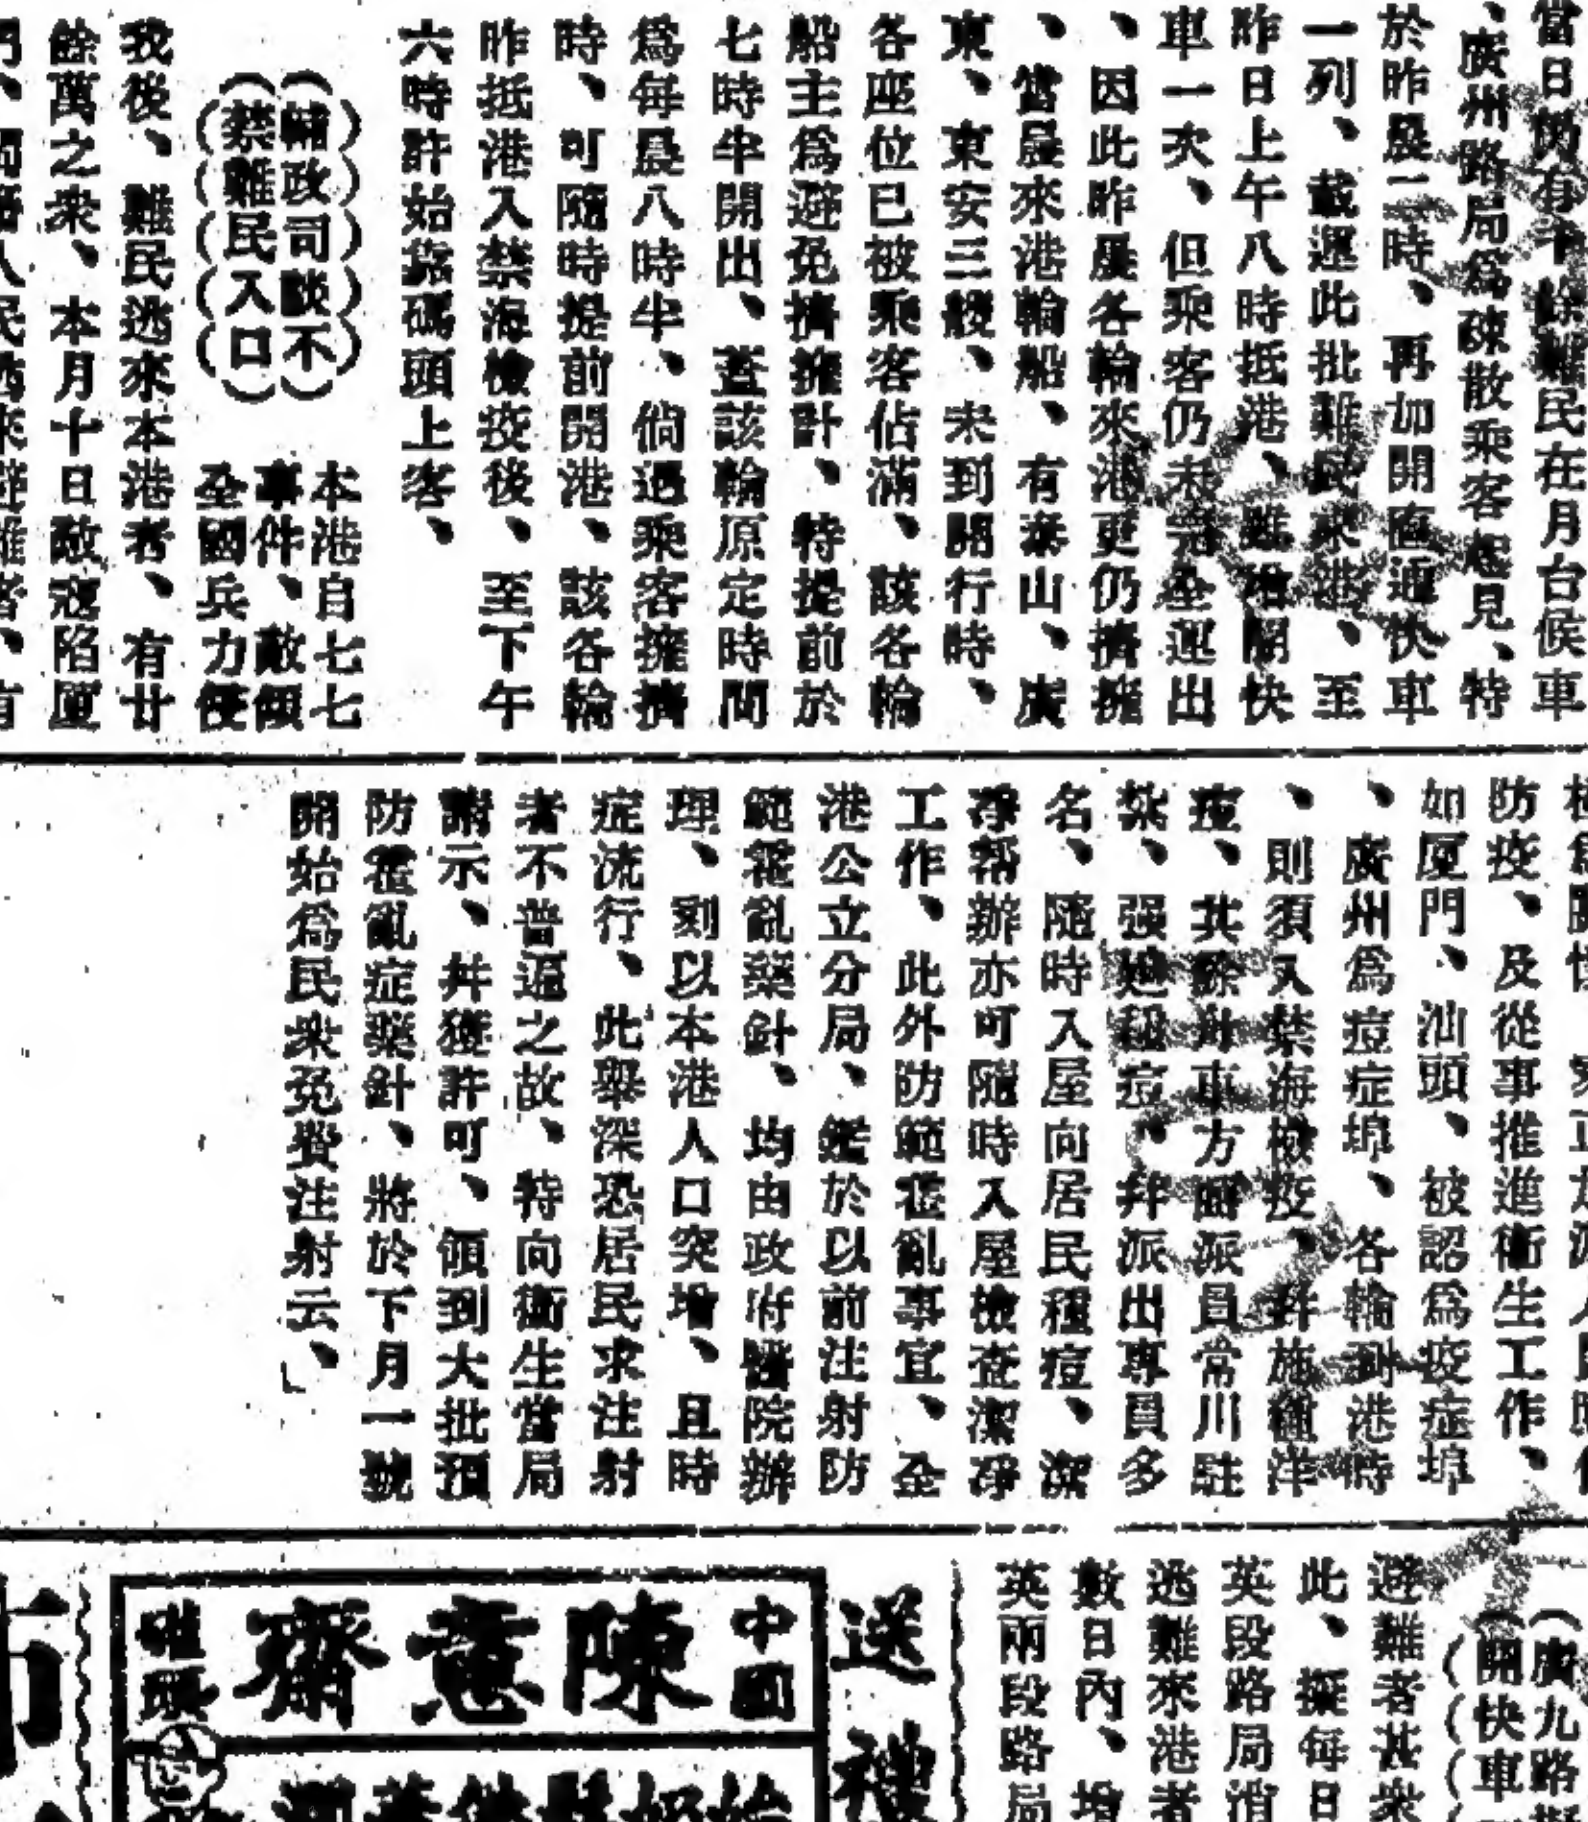 當日仍有千餘難民在月台候車
、廣州路局為疎散乘客起見、特
於昨晨二時、再加開直通快車
一列、載運此批難民來港、至
昨日上午八時抵港、雖增開快
車一次、但乘客仍未完全運出
、因此昨晨各輪來港更仍擠擁
、當晨來港輪船、有泰山、廣
東、東安三艘、未到開行時、
各座位已被乘客佔滿、該各輪
船主為避免擠擁計、特提前於
七時半開出、蓋該輪原定時間
為每晨八時半、倘遇乘客擁擠
時、可隨時提前開港、該各輪
昨抵港入禁海檢疫後、至下午
六時許始靠碼頭上客、
(輔政司談不)
(禁難民入口)
本港自七七
事件、敵傾
全國兵力侵
我後、難民逃來本港者、有廿
餘萬之衆、本月十日敵寇陷厦
防疫、及從事推進衛生工作、
如厦門、汕頭、被認為疫症埠
、廣州為痘症埠、各輪到港時
、則須入禁海檢疫、并施種洋
痘、其餘舟車方面派員常川駐
紮、强廹種痘、并派出專員多
名、隨時入屋向居民種痘、潔
淨幫辦亦可隨時入屋檢查潔淨
工作、此外防範霍亂事宜、全
港公立分局、鑑於以前注射防
範霍亂藥針、均由政府醫院辦
理、刻以本港人口突增、且時
症流行、此舉深恐居民求注射
者不普遍之故、特向衛生當局
請示、并獲許可、領到大批預
防霍亂症藥針、將於下月一號
開始為民衆免費注射云、」
(廣九路
(開快車
避難者甚衆
此、擬每日
英段路局消
逃難來港者
數日內、增
英兩段路局
送禮
中國
陳意齋